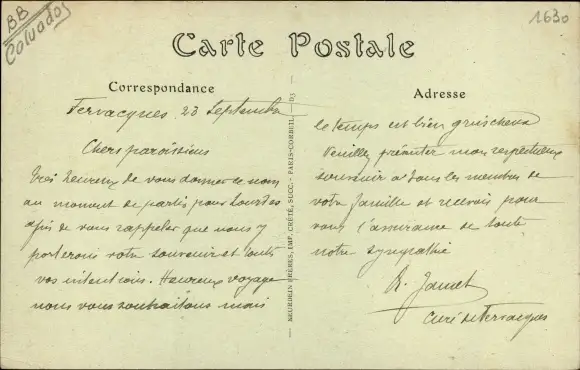 BB
Calvados
1630
Carte Postale
Correspondance
Fervacques 23 Septembre
Chers paroissiens
Très heureux de vous donner ce mom
au moment de partir pour Lourdes
afin de vous rappeler que nous y
porterons votre souvenir et toutes
vos intentions. Heureux voyage
nous vous souhaitons mais
NEURDEIN FRÈRES, IMP. CRÉTÉ, SUCC. - PARIS-CORBEIL - D3
Adresse
le temps est bien
Veuillez présenter mon respectueux
souvenir à tous les membres de
votre famille et recevoir pour
vous l'assurance de toute
notre sympathie
R. Jamet
Curé de Fervacques